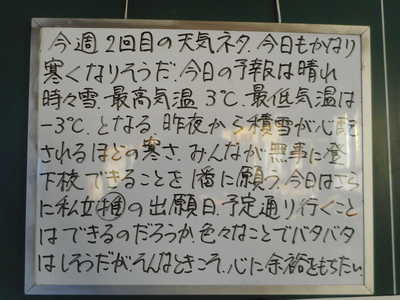 今週2回目の天気ネタ.今日もかなり
寒くなりそうだ.今日の予報は晴れ
時々雪.最高気温 3℃.最低気温は
-3℃.となる.昨夜から積雪が心配
されるほどの寒さ.みんなが無事に登
下校できることを1番に願う.今日はさら
に私立の出願日.予定通り行くこと
はできるのだろうか.色々なことでバタバタ
はしそうだが.そんなときこそ.心に余裕をもちたい.